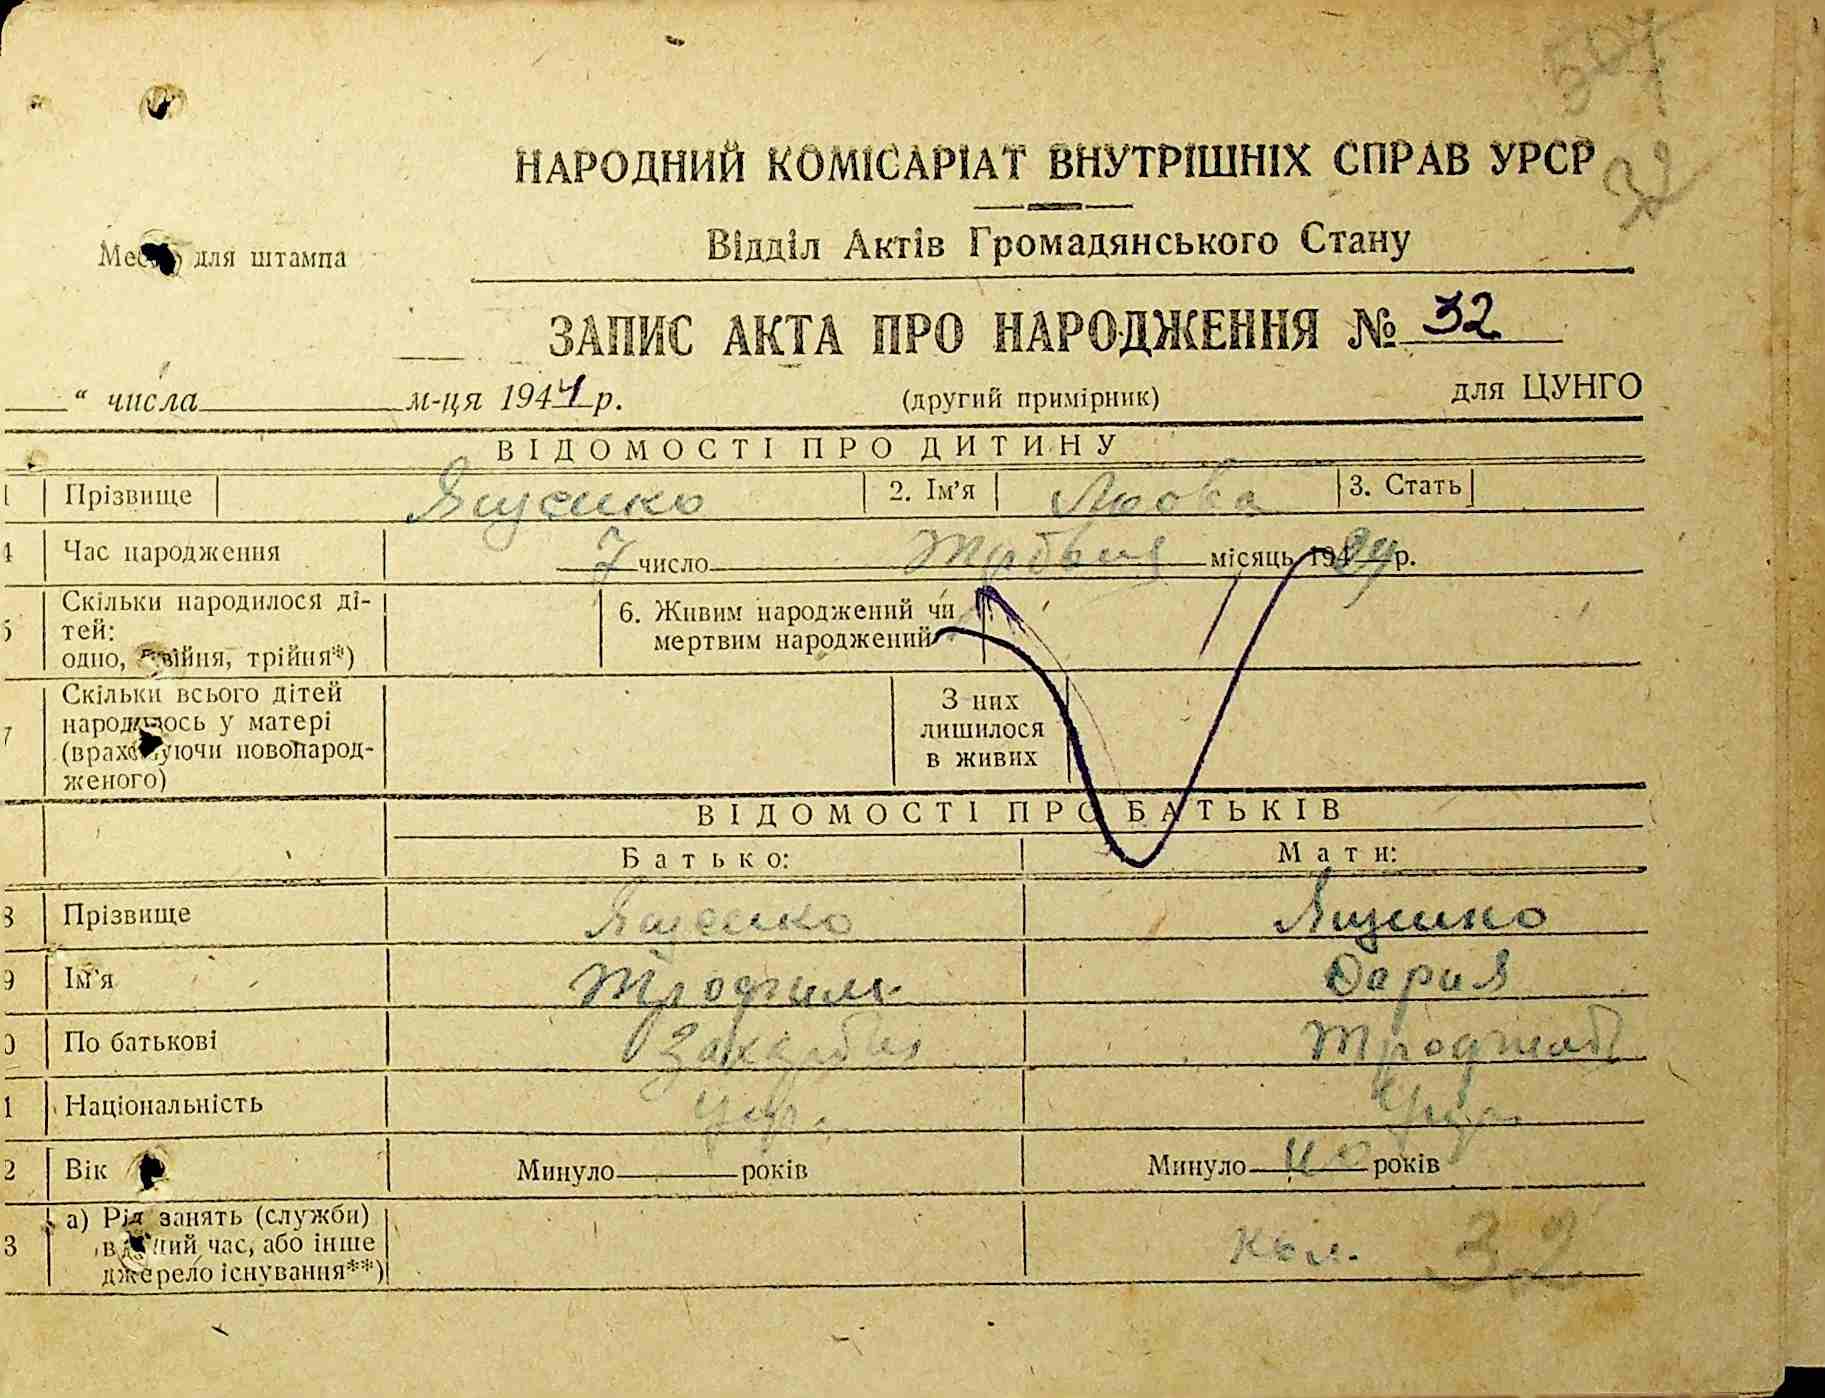 507
32
НАРОДНИЙ КОМІСАРІАТ ВНУТРІШНІХ СПРАВ УРСР
Відділ Актів Громадянського Стану
Место для штампа
ЗАПИС АКТА ПРО НАРОДЖЕННЯ № 32
“ числа м-ця 1944 р. (другий примірник) для ЦУНГО
ВІДОМОСТІ ПРО ДИТИНУ
1 Прізвище Ященко 2. Ім’я Люба 3. Стать
4 Час народження 7 число місяць 194 р.
5 Скільки народилося ді-
тей:
одно, двійня, трійня*)
6. Живим народжений чи
мертвим народжений
7 Скільки всього дітей
народилось у матері
(враховуючи новонарод-
женого)
З них
лишилося
в живих
ВІДОМОСТІ ПРО БАТЬКІВ
Батько: Мати:
8 Прізвище Ященко Ященко
9 Ім’я Трофим Дария
0 По батькові
1 Національність Укр. Укр.
2 Вік Минуло років Минуло 40 років
3 а) Рід занять (служби)
в даний час, або інше
джерело існування**)
Кол. 32